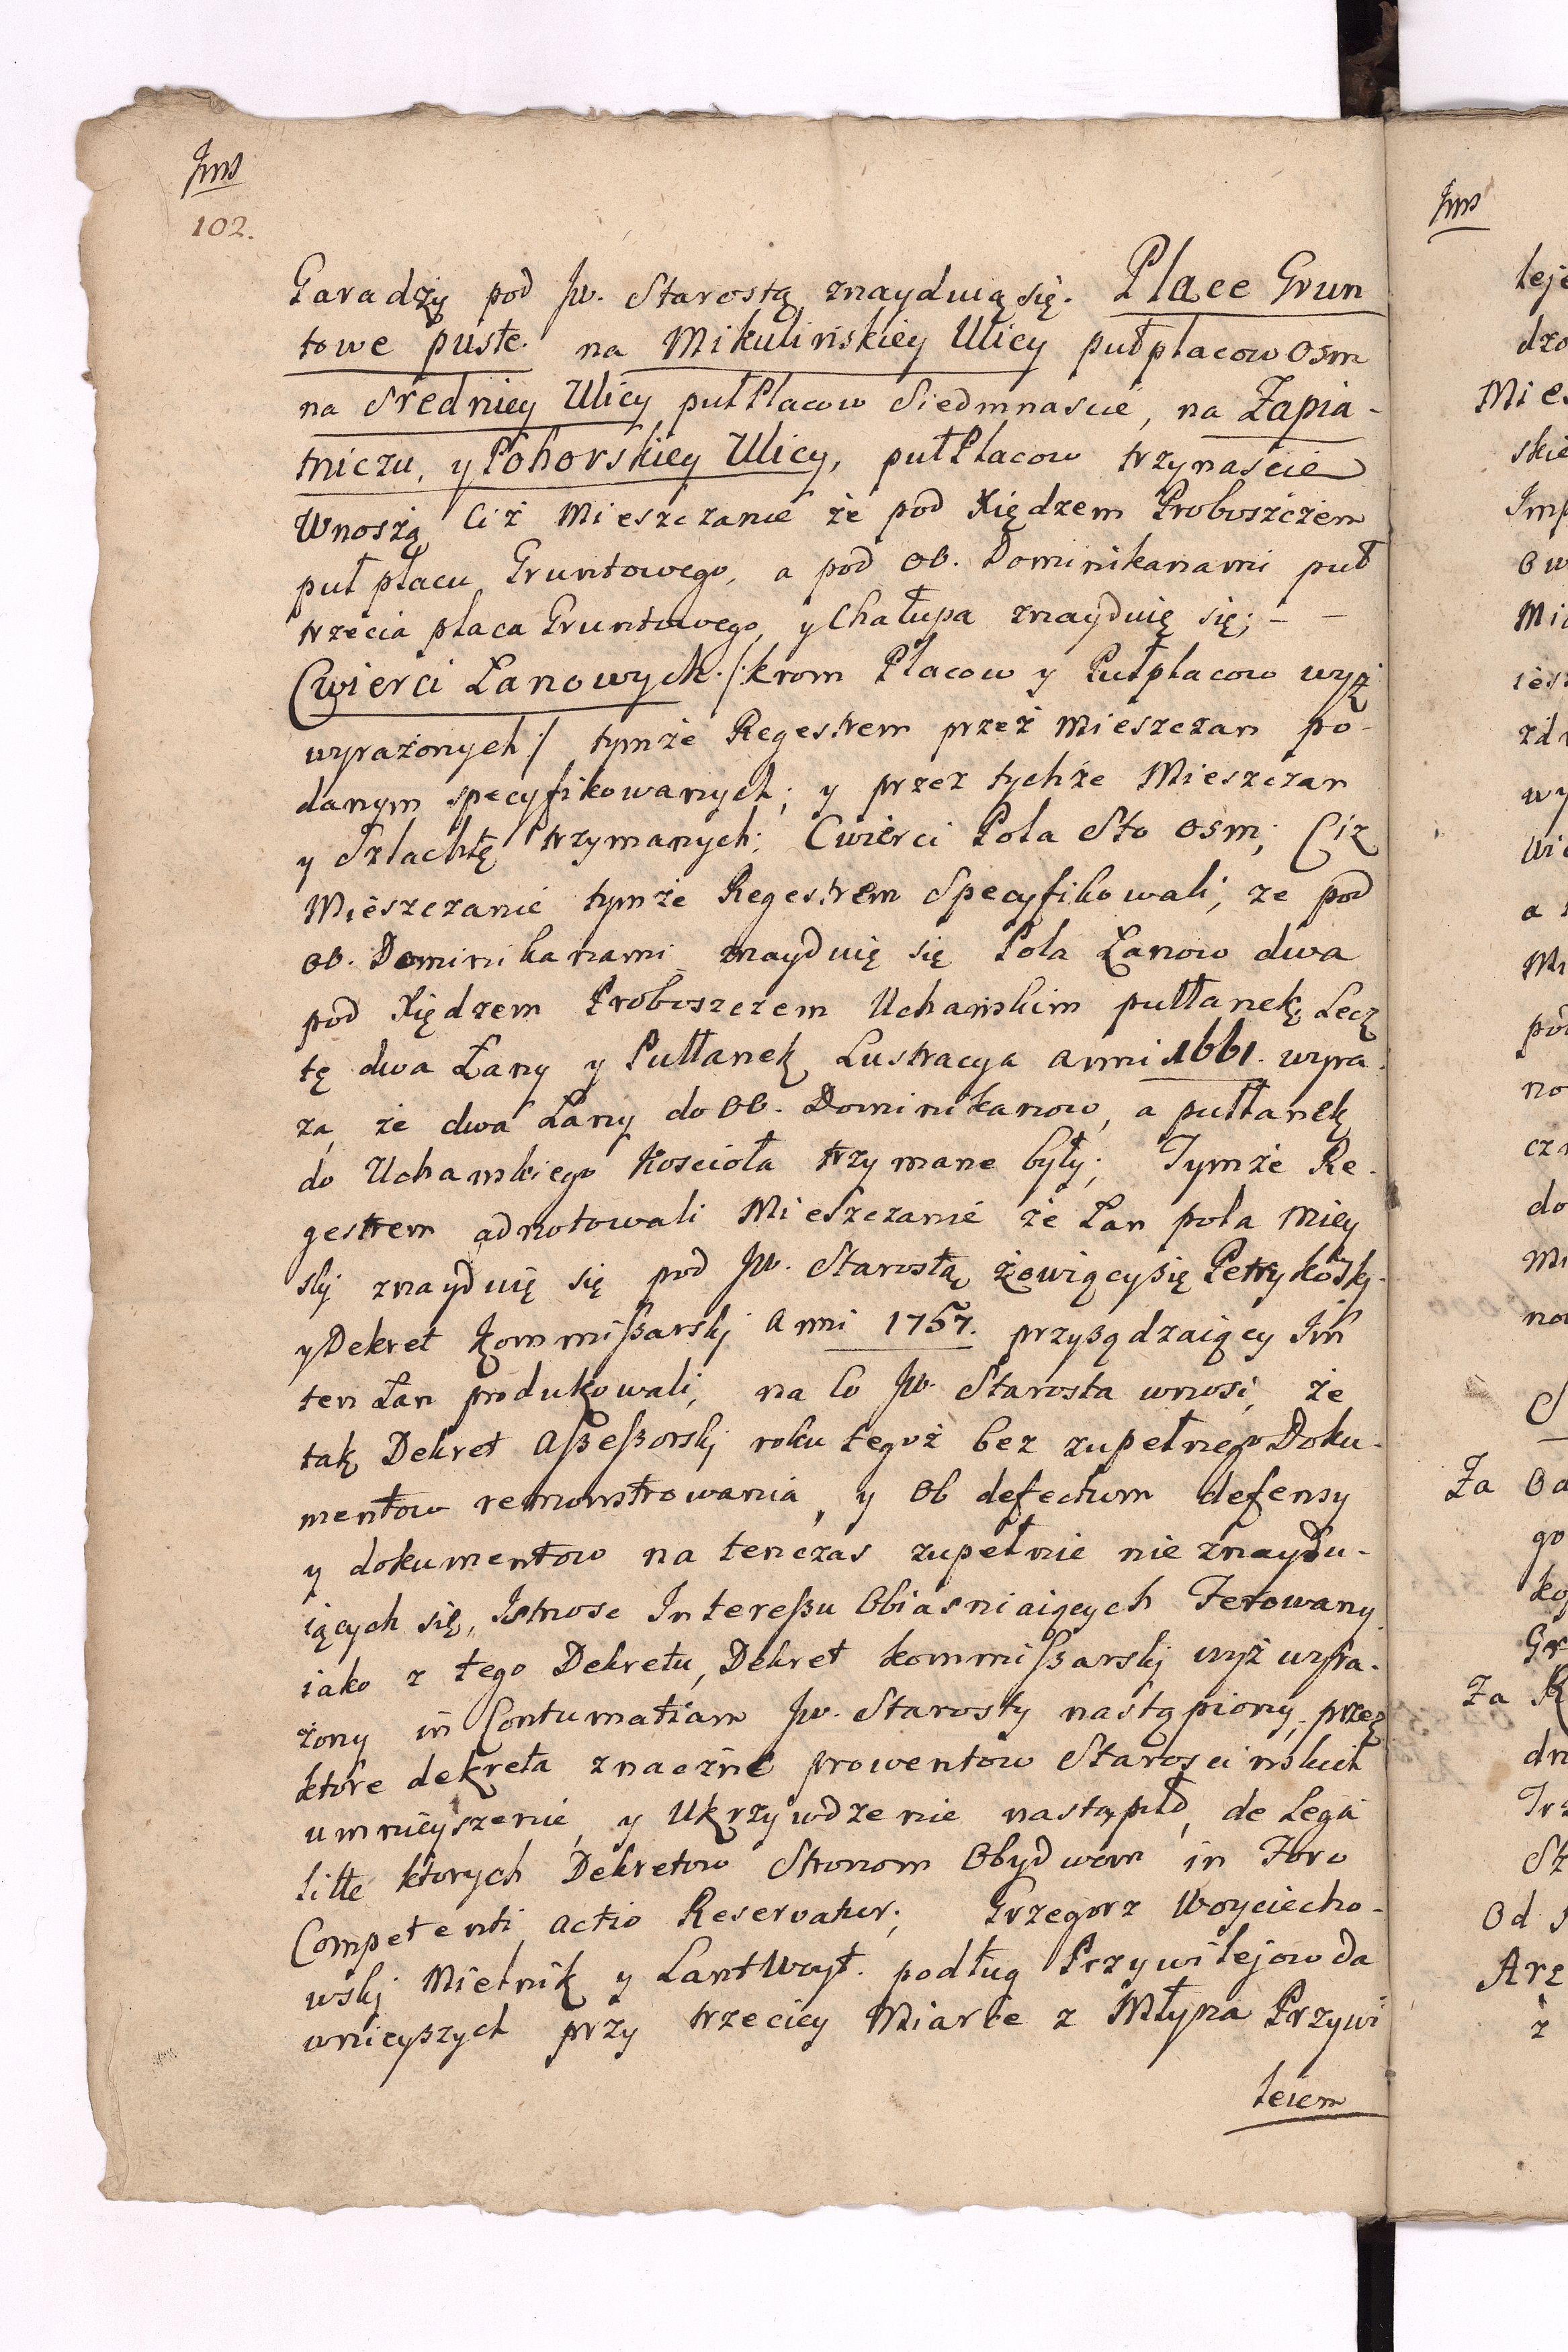 102.
Garadzy pod Jw. Starostą znayduią się. Place Grun
towe puste. na Mikulińskiey Ulicy pułplacow Osm
na Sredniey Ulicy pułPlacow Siedmnascie, na Zapia-
tniczu, y Pohorskiey Ulicy, pułPlacow trzynascie
Wnoszą Ciż Mieszczanie że pod Xiędzem Proboszczem
puł placu Gruntowego, a pod OO. Dominikanami puł
trzecia placa Gruntowego, y Chałupa znayduię się; - -
Cwierci Łanowych. /: krom Placow y Pułplacow wyż
wyrażonych :/ tymże Regestrem przez Mieszczan po-
danym specyfikowanych; y przez tychże Mieszczan
y Szlachtę trzymanych; Cwierci Pola Sto osm; Ciż
Mieszczanie tymże Regestrem Specyfikowali, ze pod
OO. Dominikanami znayduię się Pola Łanow dwa
pod Xiędzem Proboszczem Uchańskim pułłanek, Lecz
tę dwa Łany y Pułłanek Lustracya anni 1661. wyra-
ża, że dwa Łany do OO. Dominikanow, a pułłanek
do Uchanskiego Koscioła trzymane były; Tymże Re-
gestrem adnotowali Mieszczanie że Łan pola Miey
skj znayduię się pod Jw. Starostą zowiący się Petrykoskj-
y Dekret Kommissarskj Anni 1757. przysądzaiący Im
ten Łan produkowali, na Co Jw. Starosta wnosi, że
tak Dekret Assessorskj roku tegoż bez zupełnego Doku-
mentow remonstrowania, y Ob defectum defensy
y dokumentow na tenczas zupełnie nie znaydu-
iących się, Istnosc Interessu Obiasniaiących Ferowany
iako z tego Dekretu, Dekret kommissarskj wyż wyra-
żony in Contumatiam Jw. Starosty nastąpiony, przez
ktore dekreta znaczne prowentow Staroscinskich
umnieyszenie, y Ukrzywdzenie nastąpiło, de Lega
litte ktorych Dekretow Stronom Obydwom in Foro
Competenti actio Reservatur; Grzegorz Woyciecho-
wskj Mielnik y LantWoyt. podług Przywilejow da
wnieyszych przy trzeciey Miarce z Młyna Przywi
leiem